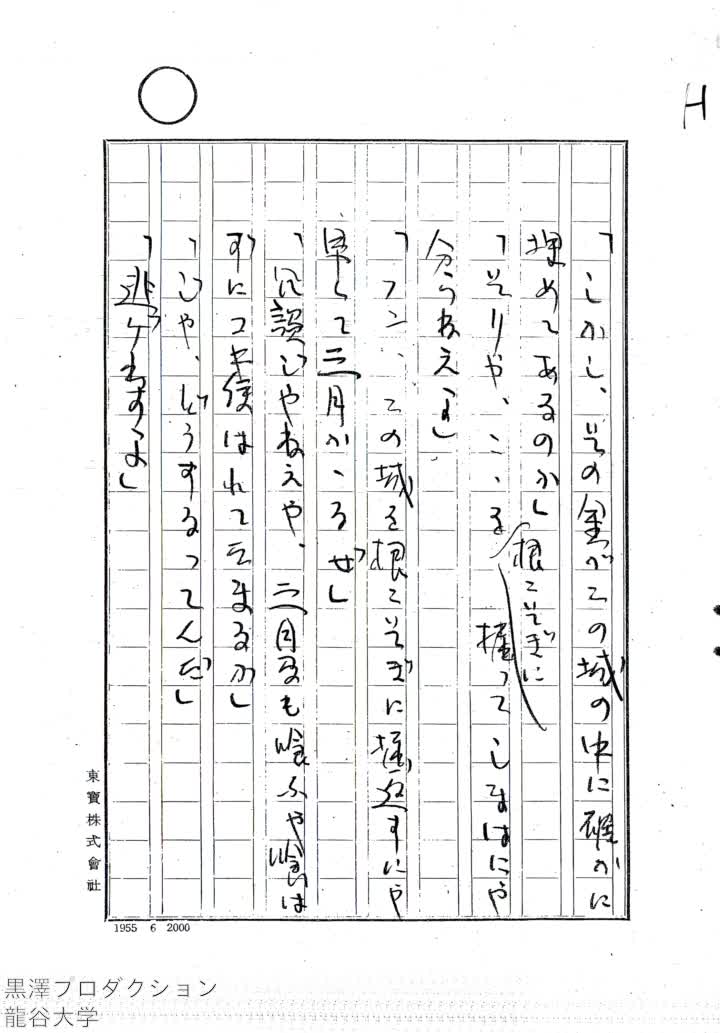 H
「しかし、その金がこの城の中に確かに
埋めてあるのか」
「そりや、こゝを根こそぎに掘ってしまはにや
分らねえよ」
「フン、、この城を根こそぎに掘返すにや
早くて三月かゝるぜ」
「冗談じやねえや、三月も喰ふや喰は
ずにコキ使はれてたまるか」
「じや、どうするってんだ」
「逃ゲ出すよ」
東寶株式會社
1955 6 2000
黒澤プロダクション
龍谷大学